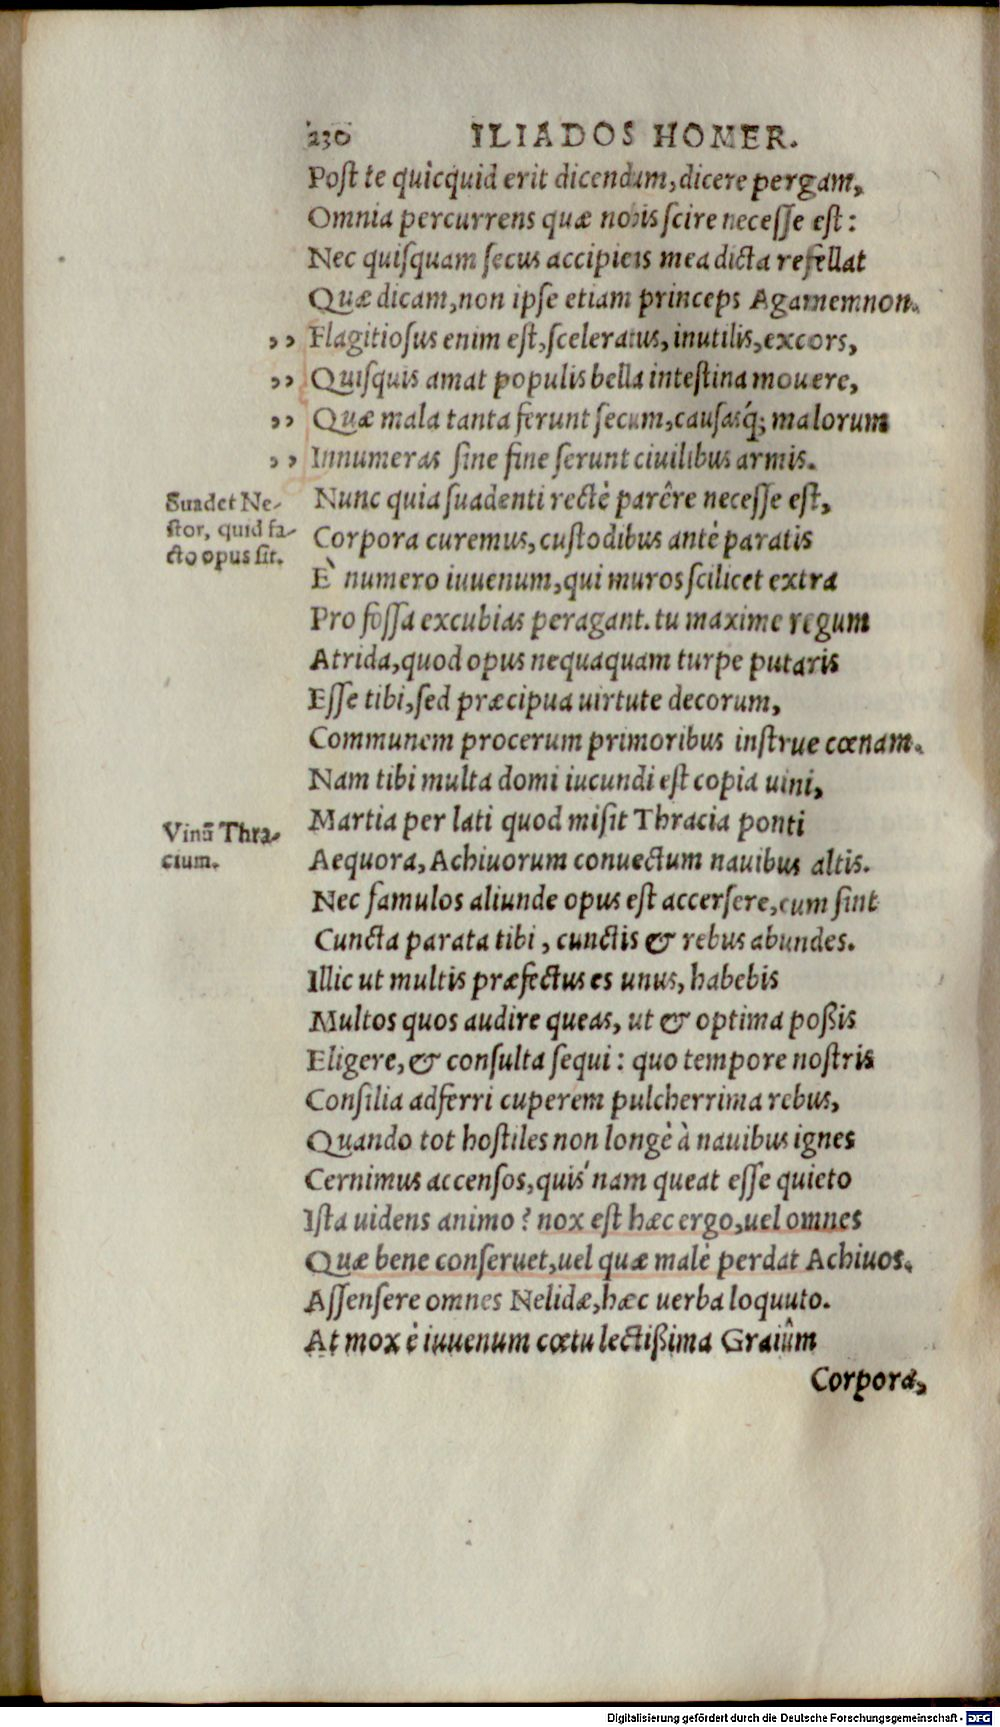 230 ILIADOS HOMER.
Post te quicquid erit dicendum, dicere pergam,
Omnia percurrens quæ nobis scire necesse est:
Nec quisquam secus accipiens mea dicta refellat
Quæ dicam, non ipse etiam princeps Agamemnon.
,, Flagitiosus enim est, sceleratus, inutilis, excors,
,, Quisquis amat populis bella intestina mouere,
,, Quæ mala tanta ferunt secum, causasq́; malorum
,, Innumeras sine fine serunt ciuilibus armis.
Suadet Ne-
stor, quid fa-
cto opus sit.
Nunc quia suadenti rectè parêre necesse est,
Corpora curemus, custodibus antè paratis
È numero iuuenum, qui muros scilicet extra
Pro fossa excubias peragant. tu maxime regum
Atrida, quod opus nequaquam turpe putaris
Esse tibi, sed præcipua uirtute decorum,
Communem procerum primoribus instrue cœnam.
Nam tibi multa domi iucundi est copia uini,
Vinū Thra-
cium.
Martia per lati quod misit Thracia ponti
Aequora, Achiuorum conuectum nauibus altis.
Nec famulos aliunde opus est accersere, cum sint
Cuncta parata tibi, cunctis & rebus abundes.
Illic ut multis præfectus es unus, habebis
Multos quos audire queas, ut & optima poßis
Eligere, & consulta sequi: quo tempore nostris
Consilia adferri cuperem pulcherrima rebus,
Quando tot hostiles non longè à nauibus ignes
Cernimus accensos, quis nam queat esse quieto
Ista uidens animo? nox est hæc ergo, uel omnes
Quæ bene conseruet, uel quæ malè perdat Achiuos.
Assensere omnes Nelidæ, hæc uerba loquuto.
At mox è iuuenum cœtu lectißima Graiûm
Corpora,
Digitalisierung gefördert durch die Deutsche Forschungsgemeinschaft - DFG